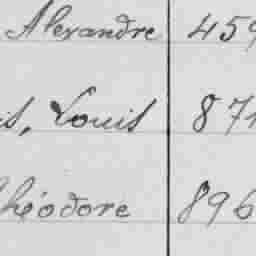 Alexandre 459
is, Louis 871
Théodore 896